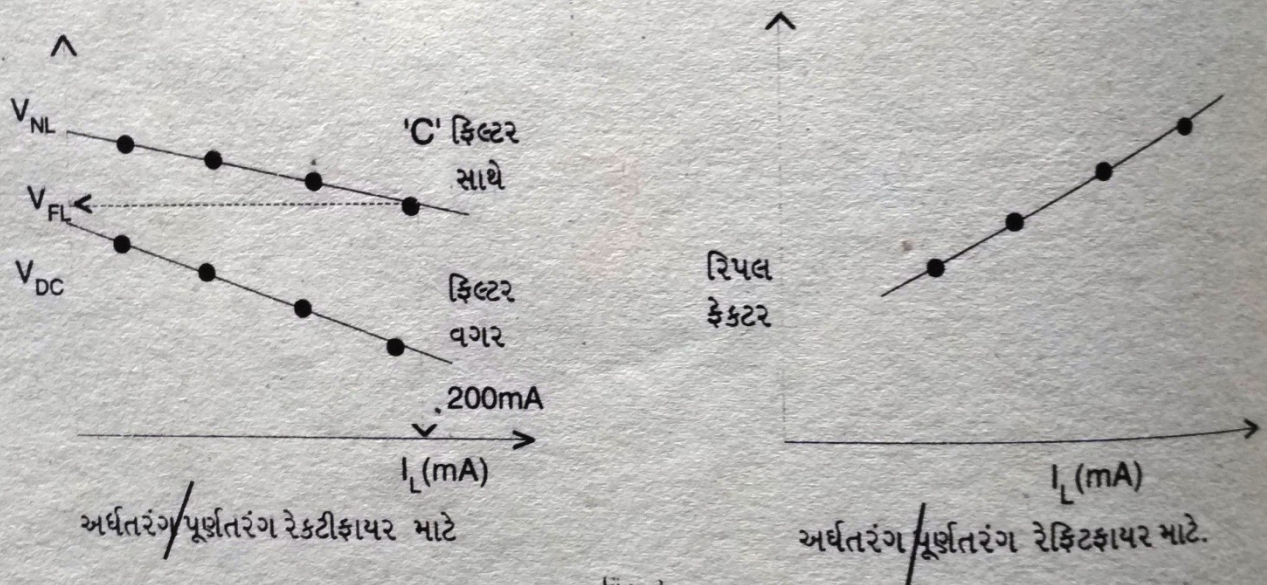 V_NL
'C' ફિલ્ટર
સાથે
V_FL
V_DC
ફિલ્ટર
વગર
200mA
I_L(mA)
અર્ધતરંગ/પૂર્ણતરંગ રેકટીફાયર માટે
રિપલ
ફેકટર
I_L(mA)
અર્ધતરંગ/પૂર્ણતરંગ રેફિટફાયર માટે.